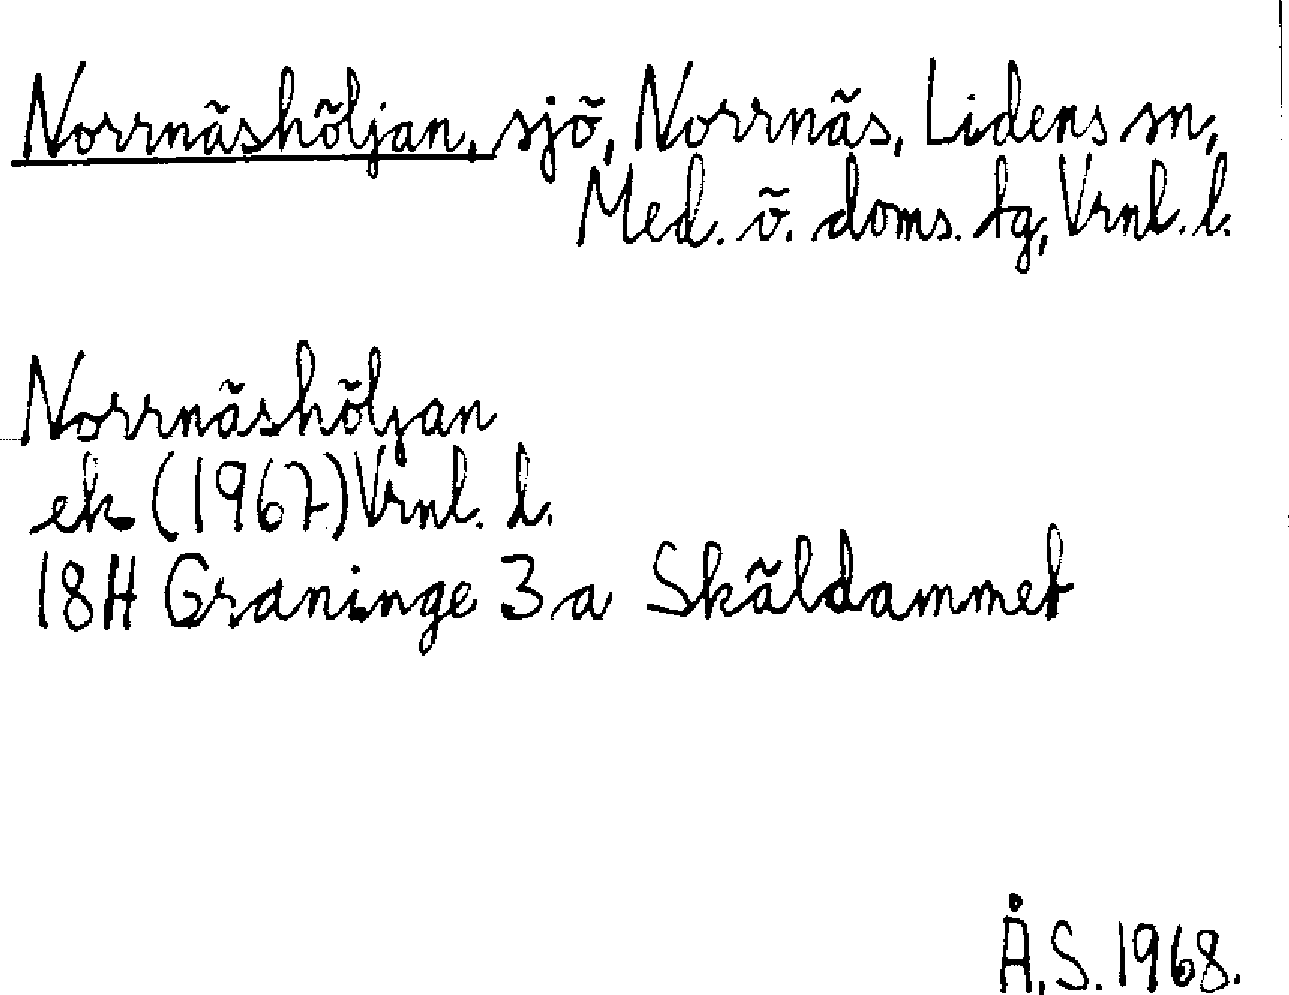 Norrnäshöljan, sjö, Norrnäs, Lidens sn,
Med. ö. doms. tg, Vrnl. l.
Norrnäshöljan
ek (1967) Vrnl. l.
18H Graninge 3a Skäldammet
Å.S. 1968.